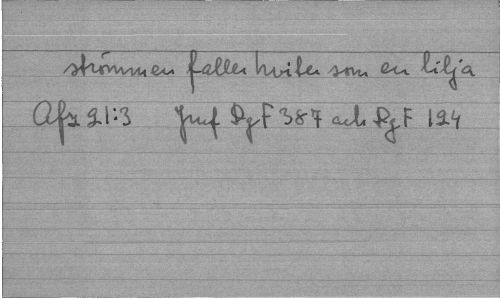 strömmen faller hviter som en lilja
Afz 91:3 Jmf DgF 387 och DgF 124